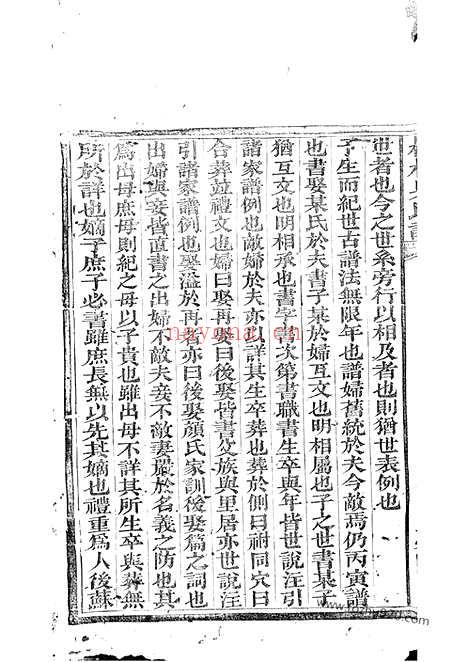 世者也今之世系旁行以相及者也則猶世表例也
子生而紀世古譜法無限年也譜婦舊統於夫今敵焉仍丙寅譜
也書娶某氏於夫書子某於婦互文也明相屬也子之世書某子
猶互文也明相承也書字書次第書職書生卒與年皆世說注引
諸家譜例也敵婦於夫亦並詳其生卒葬也葬於側曰祔同穴曰
合葬並禮文也婦曰娶再娶曰後娶皆書父族與里居亦世說注
引譜家譜例也娶溢於再亦曰後娶顏氏家訓後娶篇之詞也
出婦與妾皆直書之出婦不敵夫妾不敵妻嚴於名義之防也其
為出母庶母則紀之母以子貴也雖出母不詳其所生卒與葬無
所於詳也嫡子庶子必書雖庶長無以先其嫡也禮重為人後蘇
nayona.cn